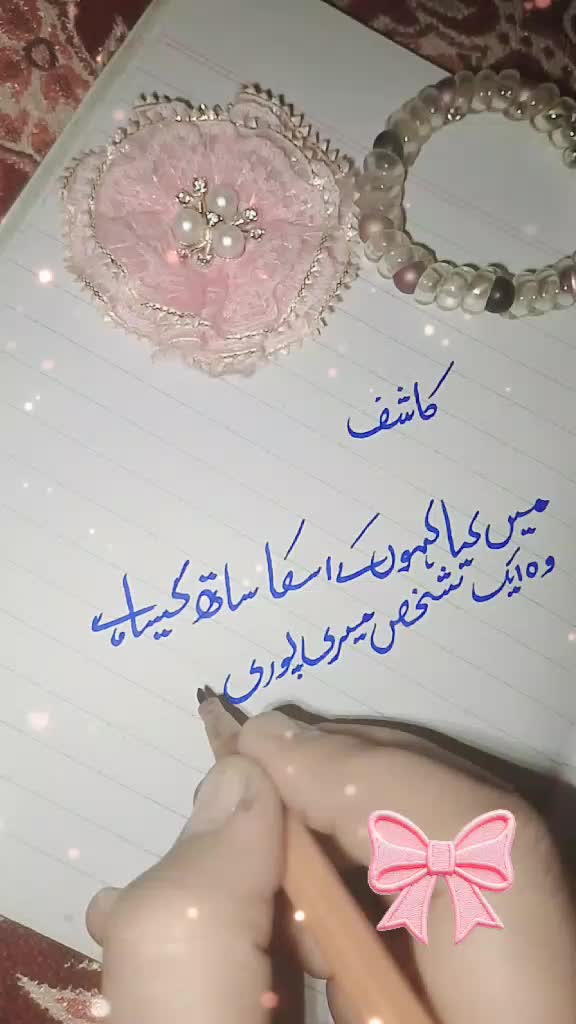 کاشف
میں کیا کہوں کے اسکا ساتھ کیسا ہے
وہ ایک شخص میری پوری